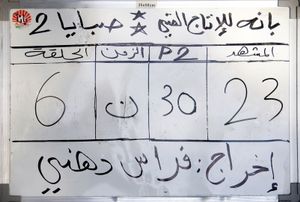 بانه للإنتاج الفني ** صبايا 2
المشهد P2 الزمن الحلقة
23 30 ن 6
إخراج : فراس دهني